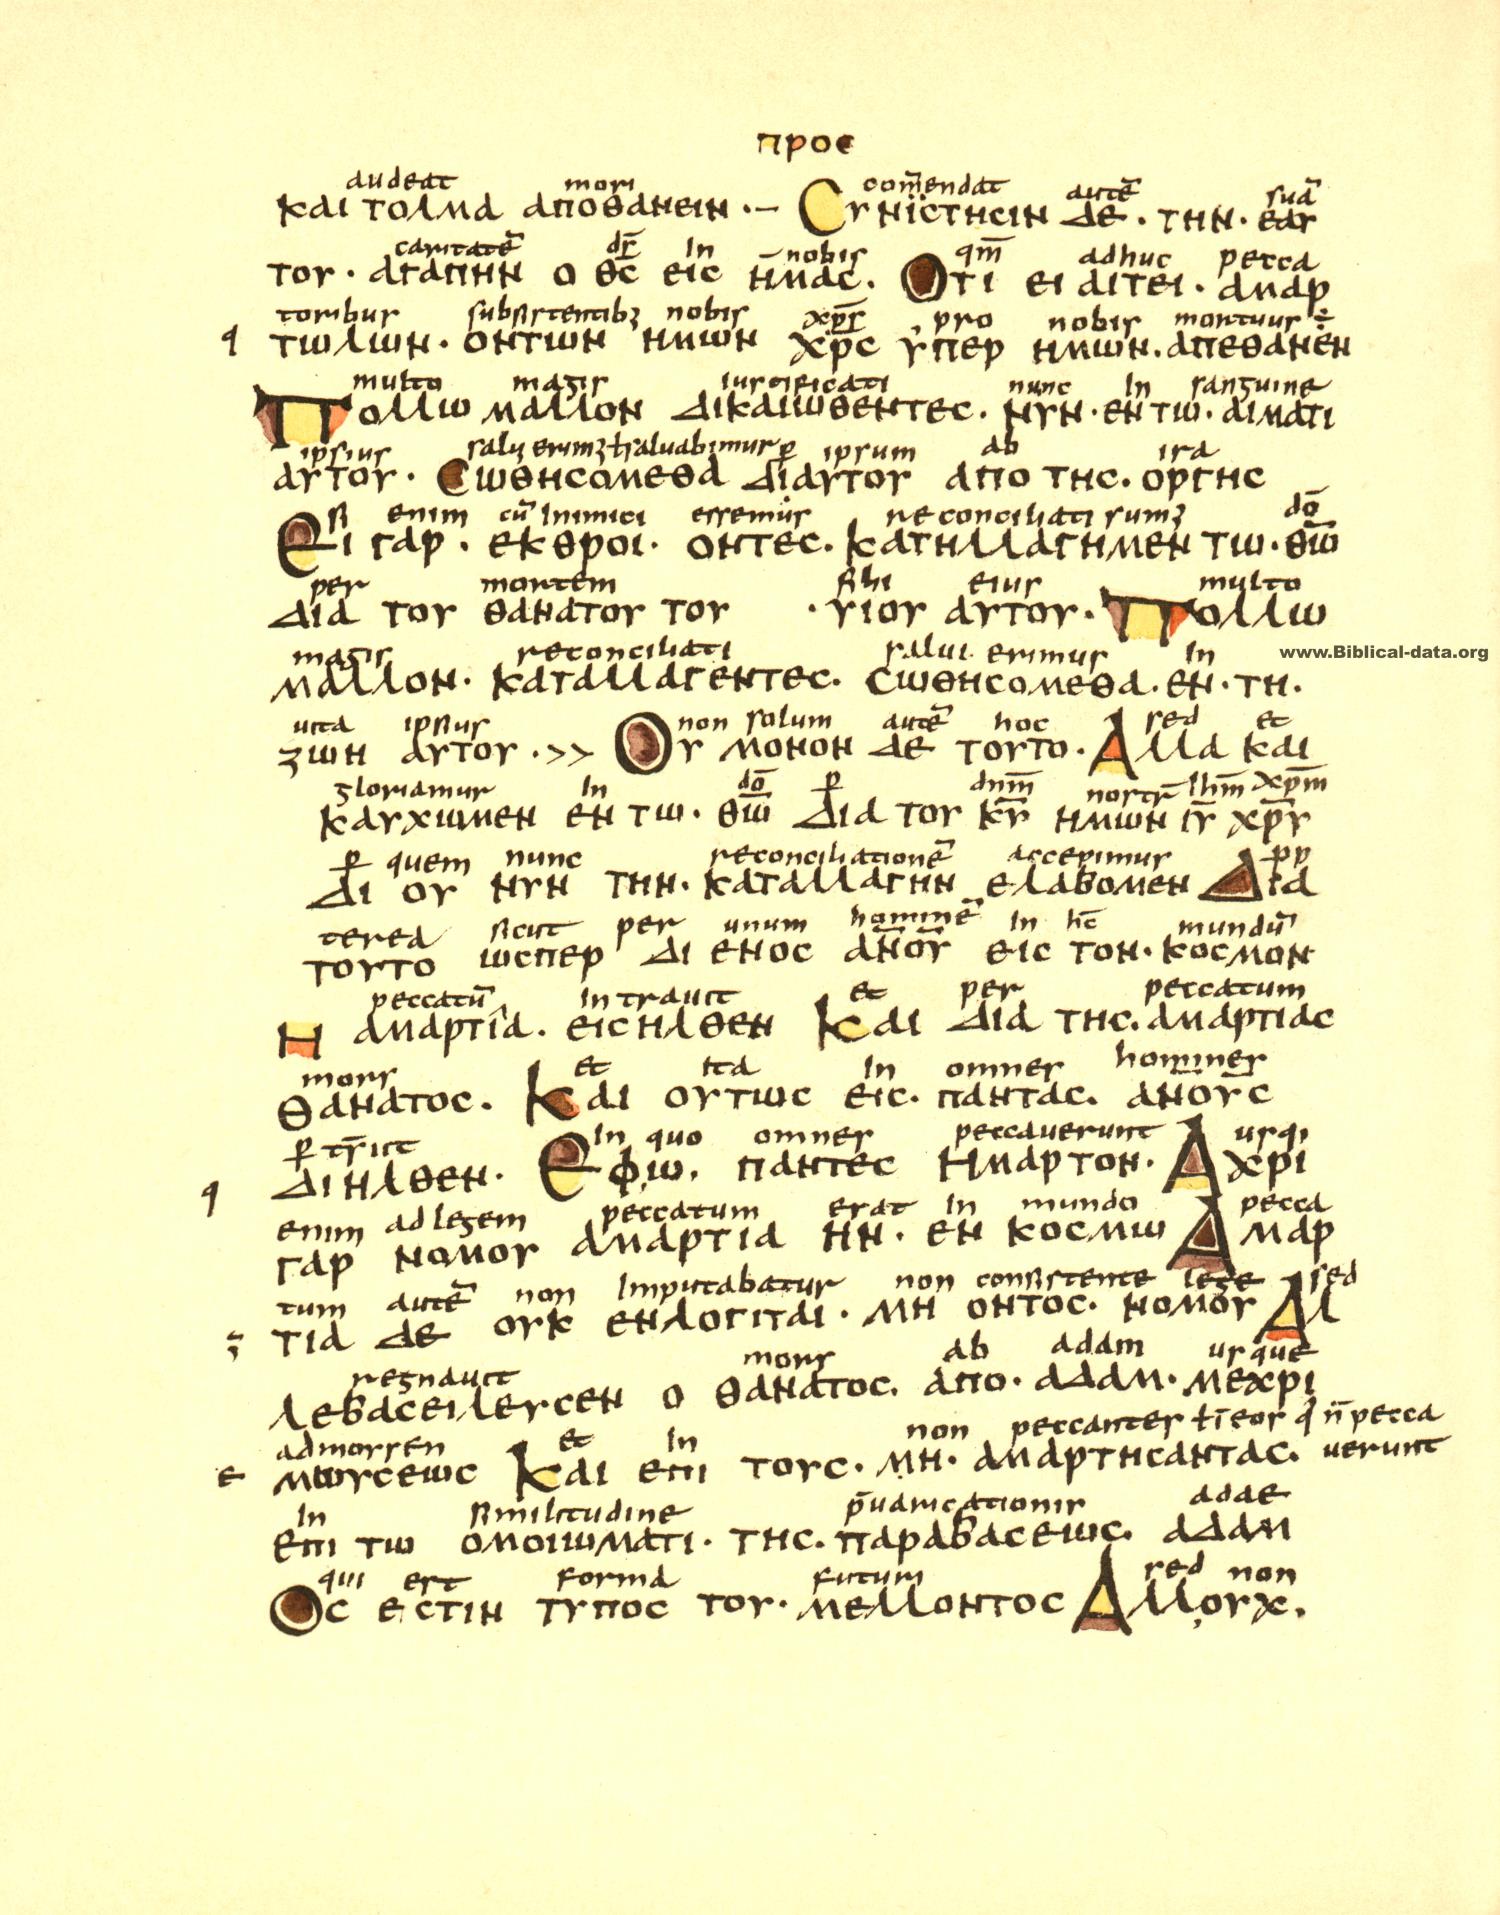 προς
audeat mori com̄endat autē suā
και τολμα αποθανειν · — Cυνϊστησιν δε · την · εαυ
caritatē dr̄ In nobis qm̄ adhuc pecca
του · αγαπην ο θ̅c̅ εις ημας. Οτι ει αιτει · αμαρ
toribus subsistentib; nobis xp̄s pro nobis mortuus ÷
q τωλιων · οντιων ημων χ̅ρ̅c̅ υπερ ημων. απεθανεν
multo magis iustificati nunc In sanguine
Πολλω μαλλον δικαιωθεντες · νυν · εν τω · αιματι
ipsius salui erim; ł saluabimur p̄ ipsum ab ira
αυτου · Cωθησομεθα διαυτου απο της. οργης
si enim cū Inimici essemus reconciliati sum; dō
Ει γαρ · εκθροι · οντες. κατηλλαγημεν τω · θ̅ω̅
per mortem filii eius multo
δια του θανατου του · υιου αυτου · Πολλω
magis reconciliati salui erimus In
μαλλον · καταλλαγεντες. cωθησομεθα. εν · τη.
uita ipsius non solum autē hoc sed et
ζων αυτου · >> Ου μονον δε τουτο · Αλλα και
gloriamur In dō p̄ dnm̄ nostr̄ Ihm̄ xpm̄
καυχωμεν εν τω · θ̅ω̅ δια του κ̅υ̅ ημων ι̅υ̅ χ̅ρ̅υ̅
p̄ quem nunc reconciliationē accepimus pp
δι ου νυν την · καταλλαγην ελαβομεν Δια
terea sicut per unum hominē In hc̄ mundū
τουτο ωσπερ δι ενος α̅ν̅ο̅υ̅ εις τον · κοσμον
peccatū Intrauit et per peccatum
η αμαρτια. εισηλθεν Και δια της. αμαρτιας
mors et ita In omnes homines
θανατος. Και ουτως εις · παντας. α̅ν̅ο̅υ̅ς
p̄trsiit In quo omnes peccauerunt usqi
q διηλθεν · Εφω. παντες ημαρτον · Αχρι
enim ad legem peccatum erat In mundo pecca
γαρ νομου αμαρτια ην · εν κοσμω Αμαρ
tum autē non Imputabatur non consistente lege sed
ζ τια δε ουκ ενλογιται · μη οντος · νομου Αλ
regnauit mors ab adam usque
λεβασειλευσεν ο θανατος. απο · αδαμ · μεχρι
ad mosen et In non peccantes ł Ī eos q n̄ pecca
ε μωυσεως Και επι τους · μη · αμαρτησαντας. uerunt
In similitudine p̄uaricationis adae
επι τω ομοιωματι · της. παραβασεως. αδαμ
qui est forma futuri sed non
Ος εστιν τυπος του · μελλοντος Αλλουχ.
www.Biblical-data.org